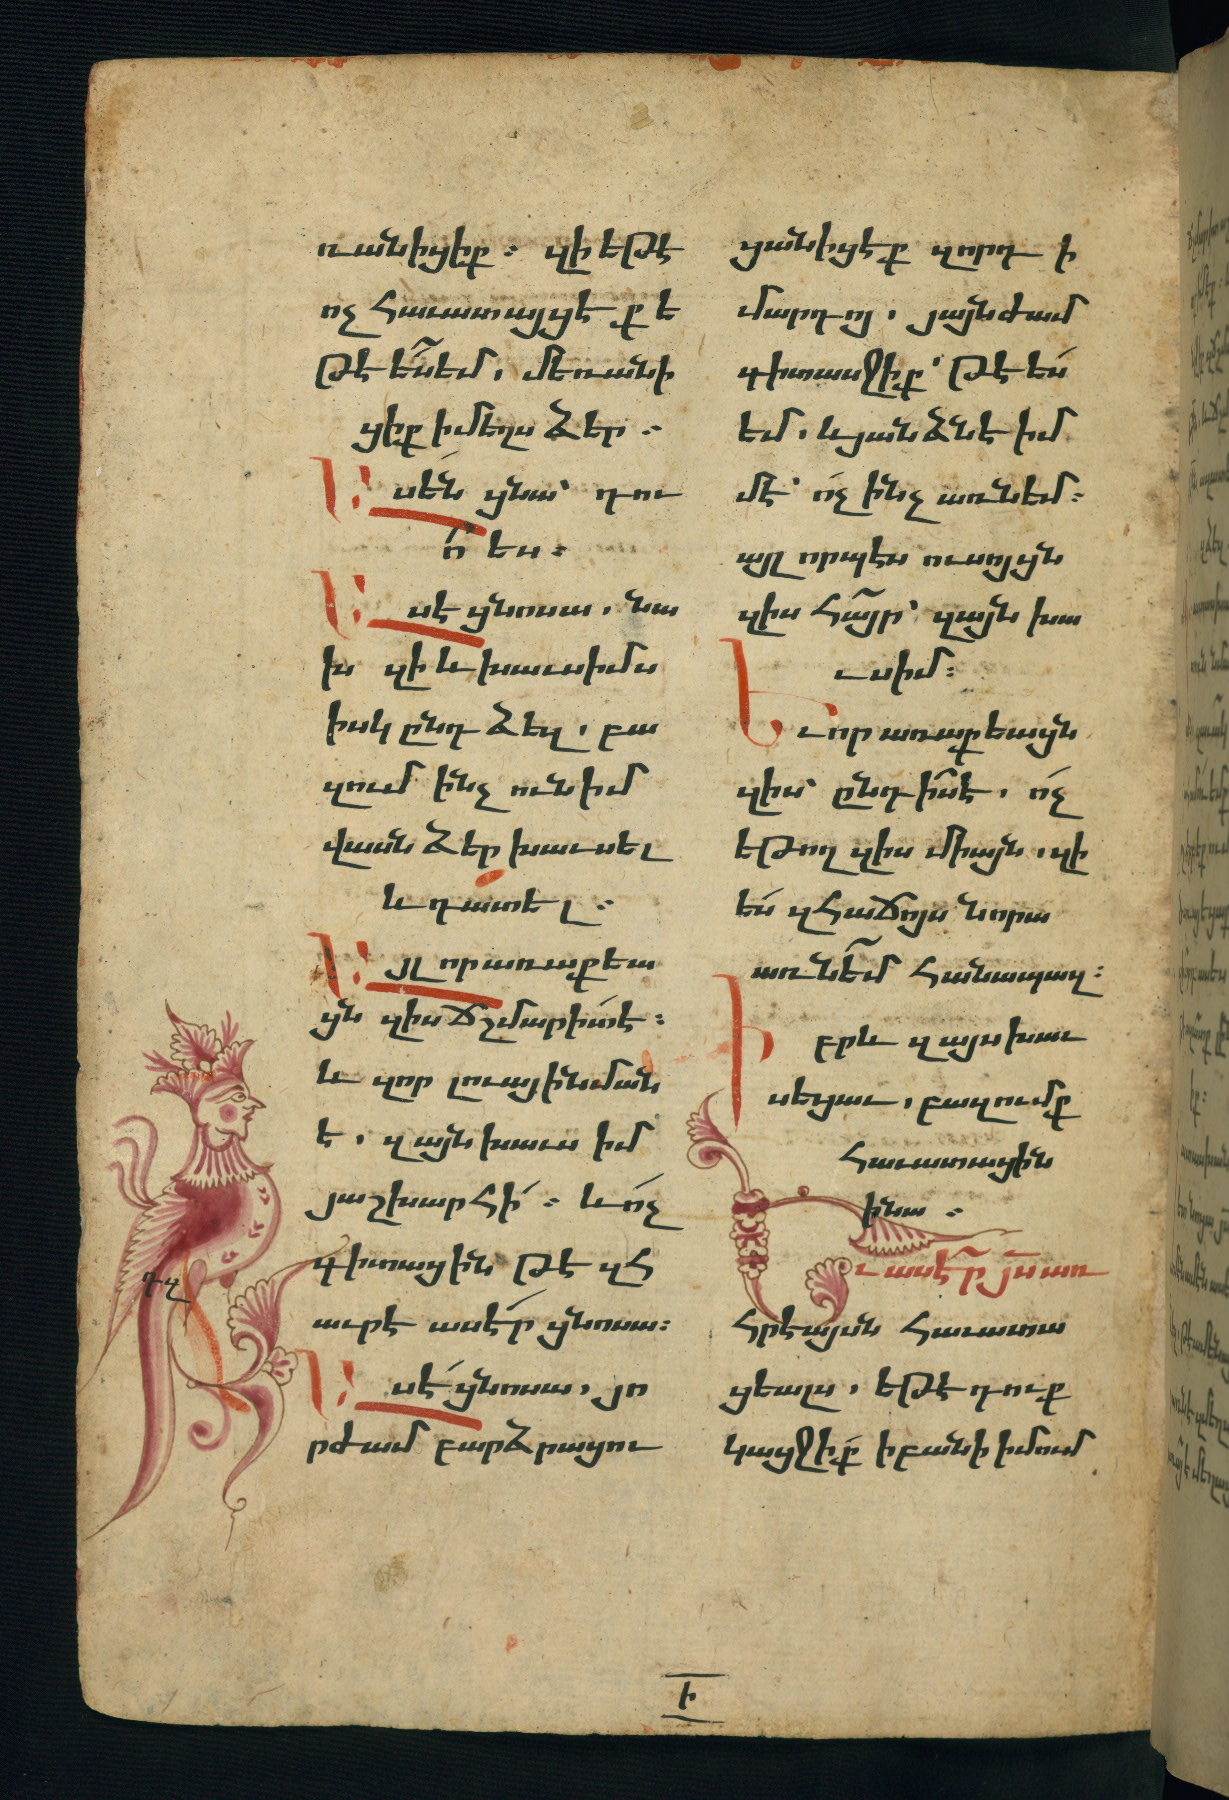 ռանիցիք։ զի եթէ
ոչ հաւատայցէք ե
թէ ես եմ, մեռանի
ցիք ի մեղս ձեր։
Ասեն ցնա՝ դու
ո՞ ես։
Ասէ ցնոսա, նա
խ զի և խաւսիմս
իսկ ընդ ձեզ, բա
զում ինչ ունիմ
վասն ձեր խաւսել
և դատել։
Այլ որ առաքեա
ցն զիս ճշմարիտ է։
և զոր լուայ ի նմանն
է, զայն խաւս իմ
յաշխարհի։ և ոչ
գիտացին թէ զհ
աւրէ ասէր ցնոսա։
Ասէ ցնոսա, յո
րժամ բարձրացու
ցանիցէք զորդ ի
մարդոյ, յայնժամ
գիտասջիք՝ թէ ես
եմ, և յանձնէ իմ
մէ՝ ոչ ինչ առնեմ։
այլ որպէս ուսոյցն
զիս հայր՝ զայն խա
ւսիմ։
Եւ որ առաքեացն
զիս՝ ընդ իս է, ոչ
եթող զիս միայն, զի
ես զհաճոյս նորա
առնեմ հանապազ։
Իբրև զայս խաւ
սեցաւ, բազումք
հաւատացին
ի նա։
Եւ ասէր յս առ
հրեայսն հաւատա
ցեալս, եթէ դուք
կայցջիք ի բանի իմում
դզ
Ի